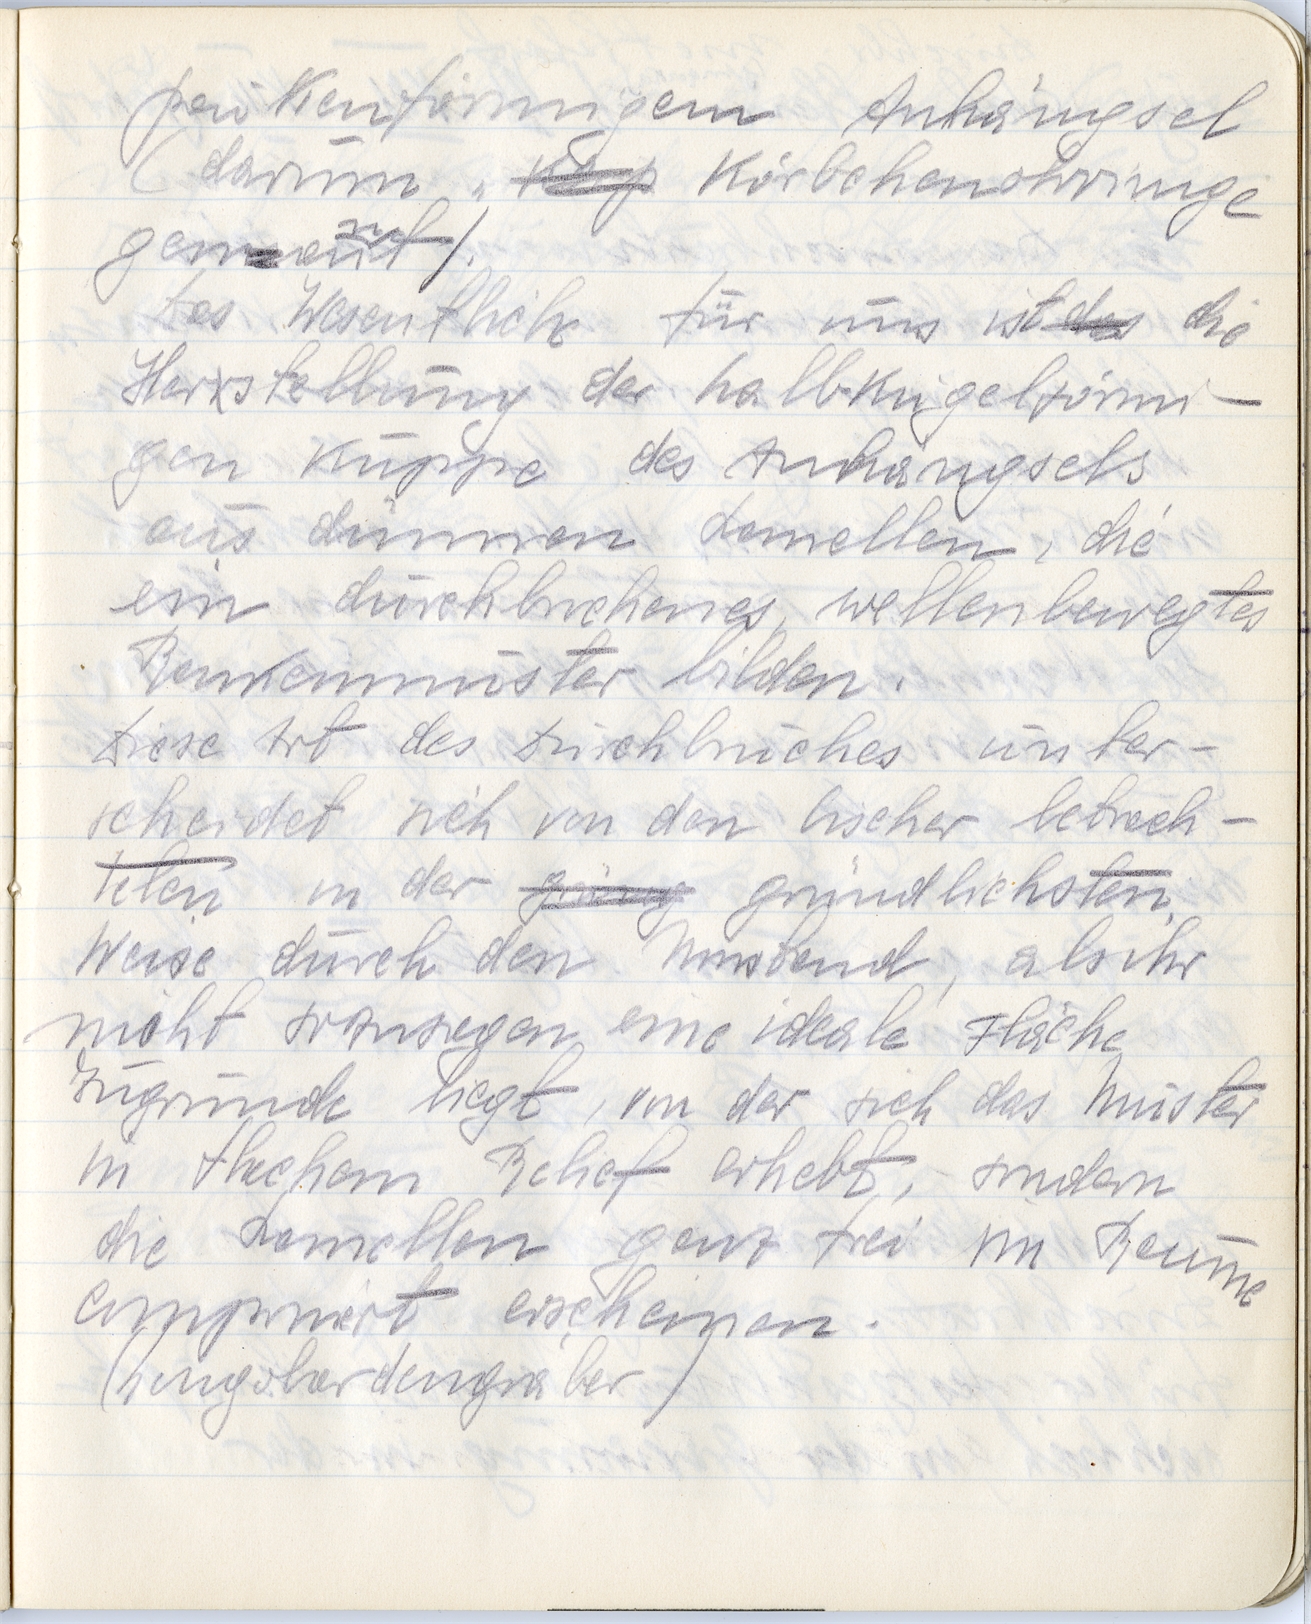 paukenförmigem Anhängsel
(darum „Körbchenohrringe
genannt).
Das Wesentliche für uns ist die
Herstellung der halbkugelförmi-
gen Kuppe des Anhängsels
aus dünnen Lamellen, die
ein durchbrochenes, wellenbewegtes
Rankenmuster bilden.
Diese Art des Durchbruches unter-
scheidet sich von den bisher betrach-
teten in der gründlichsten
Weise durch den Umstand, als ihr
nicht sozusagen eine ideale Fläche
zugrunde liegt, von der sich das Muster
in flachem Relief erhebt, sondern
die Lamellen ganz frei im Raume
componiert erscheinen.
(Langobardengräber)